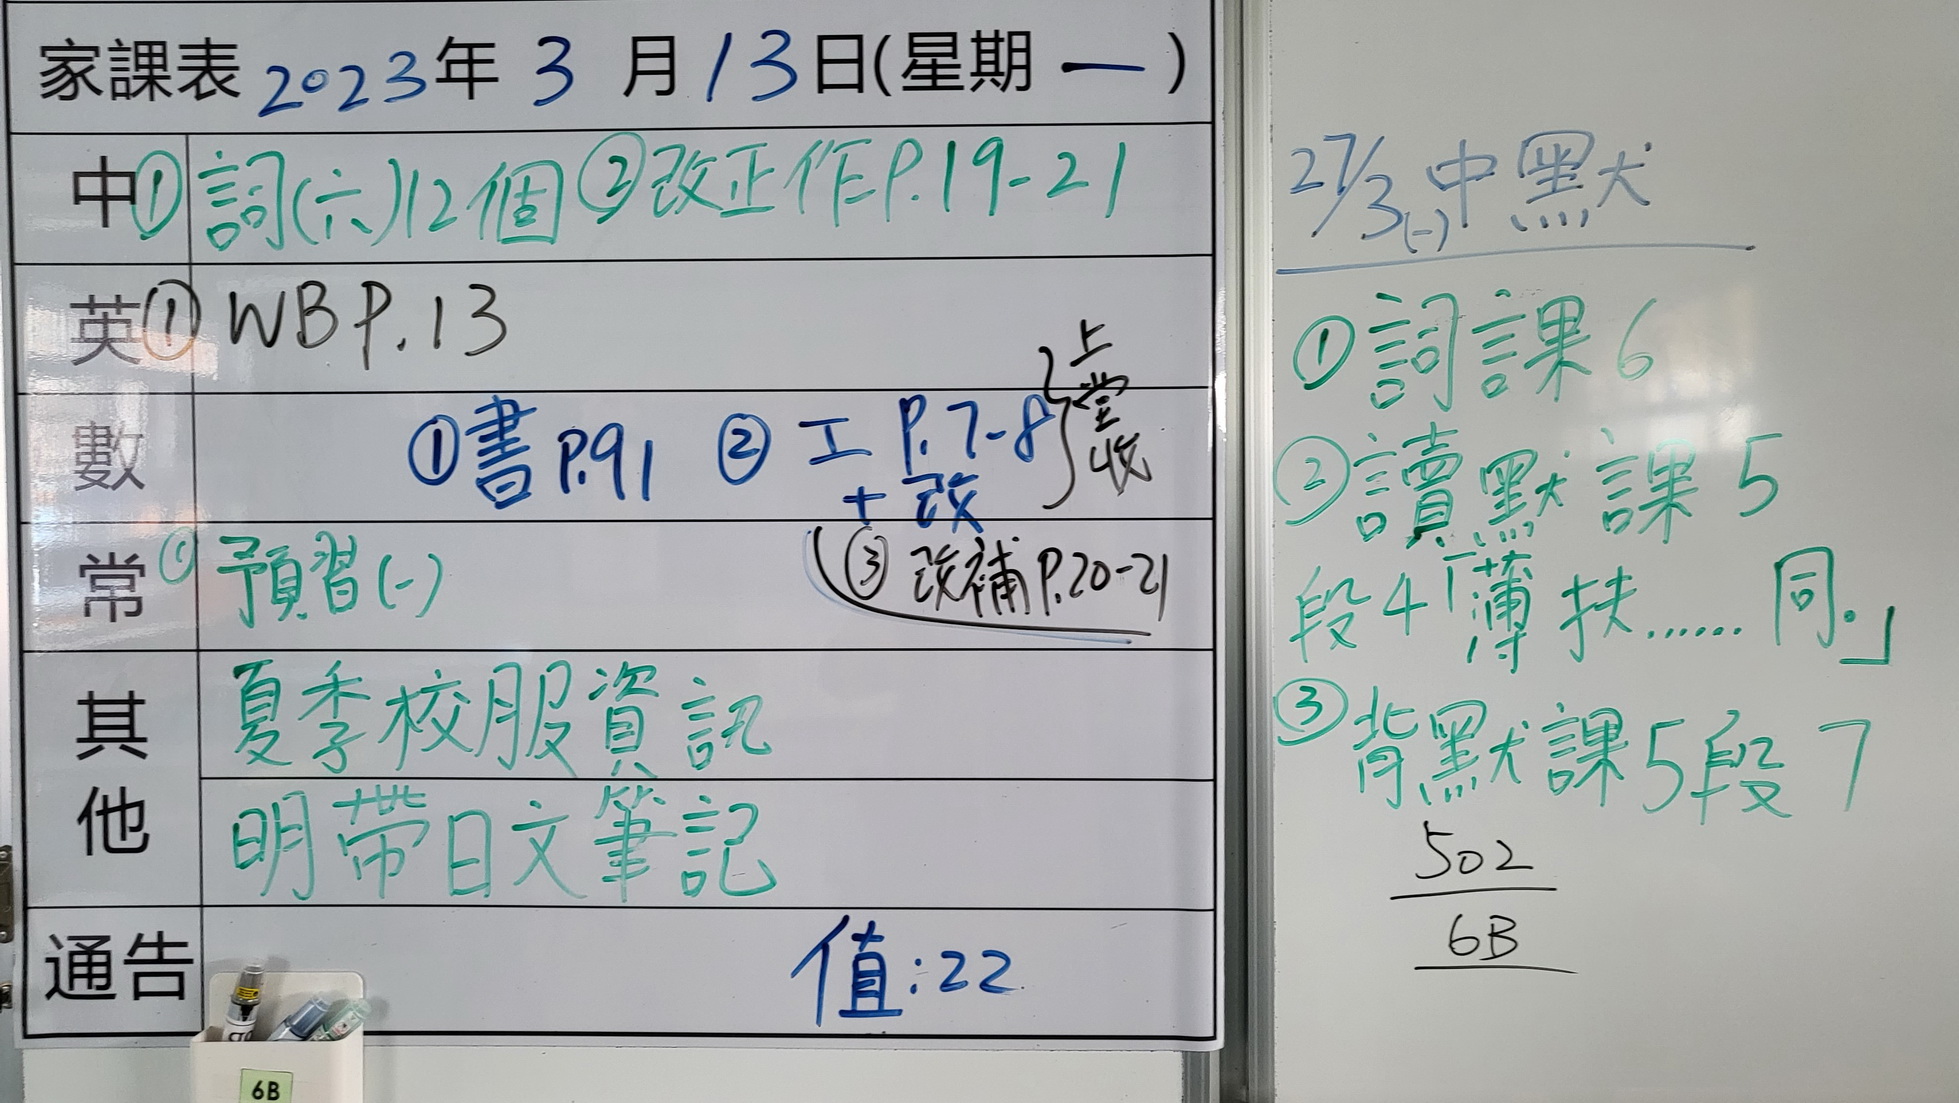 家課表 2023年 3 月 13日(星期 一 )
中 ① 詞(六)12個 ② 改正作P.19-21
英 ① WB P.13
數 ① 書P.91 ② 工 P.7-8
+ 改
上堂收
③ 改補P.20-21
常 ① 預習(一)
其他 夏季校服資訊
明帶日文筆記
通告 值:22
6B
27/3(一)中默
① 詞課6
② 讀默課5
段4「薄扶......同。」
③ 背默課5段7
502
6B